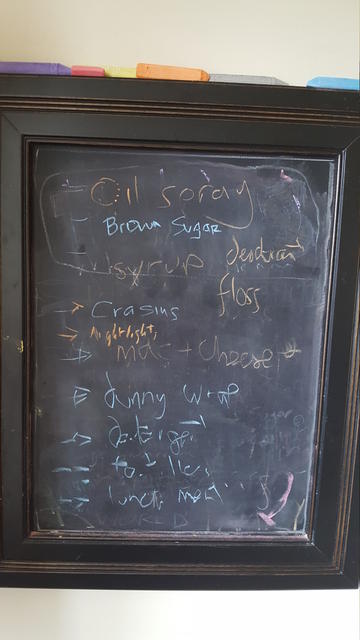 Oil spray
Brown Sugar
syrup deodorant
floss
Crasins
nightlight
mac + cheese
dunny wrap
detergent
lunch meat